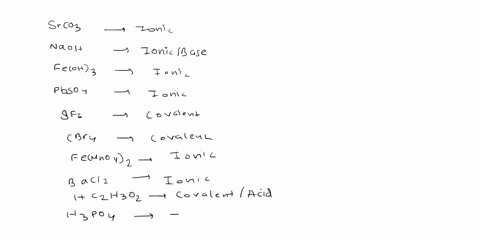 SrCO3 → Ionic
NaOH → Ionic/Base
Fe(OH)3 → Ionic
PbSO4 → Ionic
IF6 → Covalent
CBr4 → Covalent
Fe(MnO4)2 → Ionic
BaCl2 → Ionic
HC2H3O2 → Covalent/Acid
H3PO4 → –